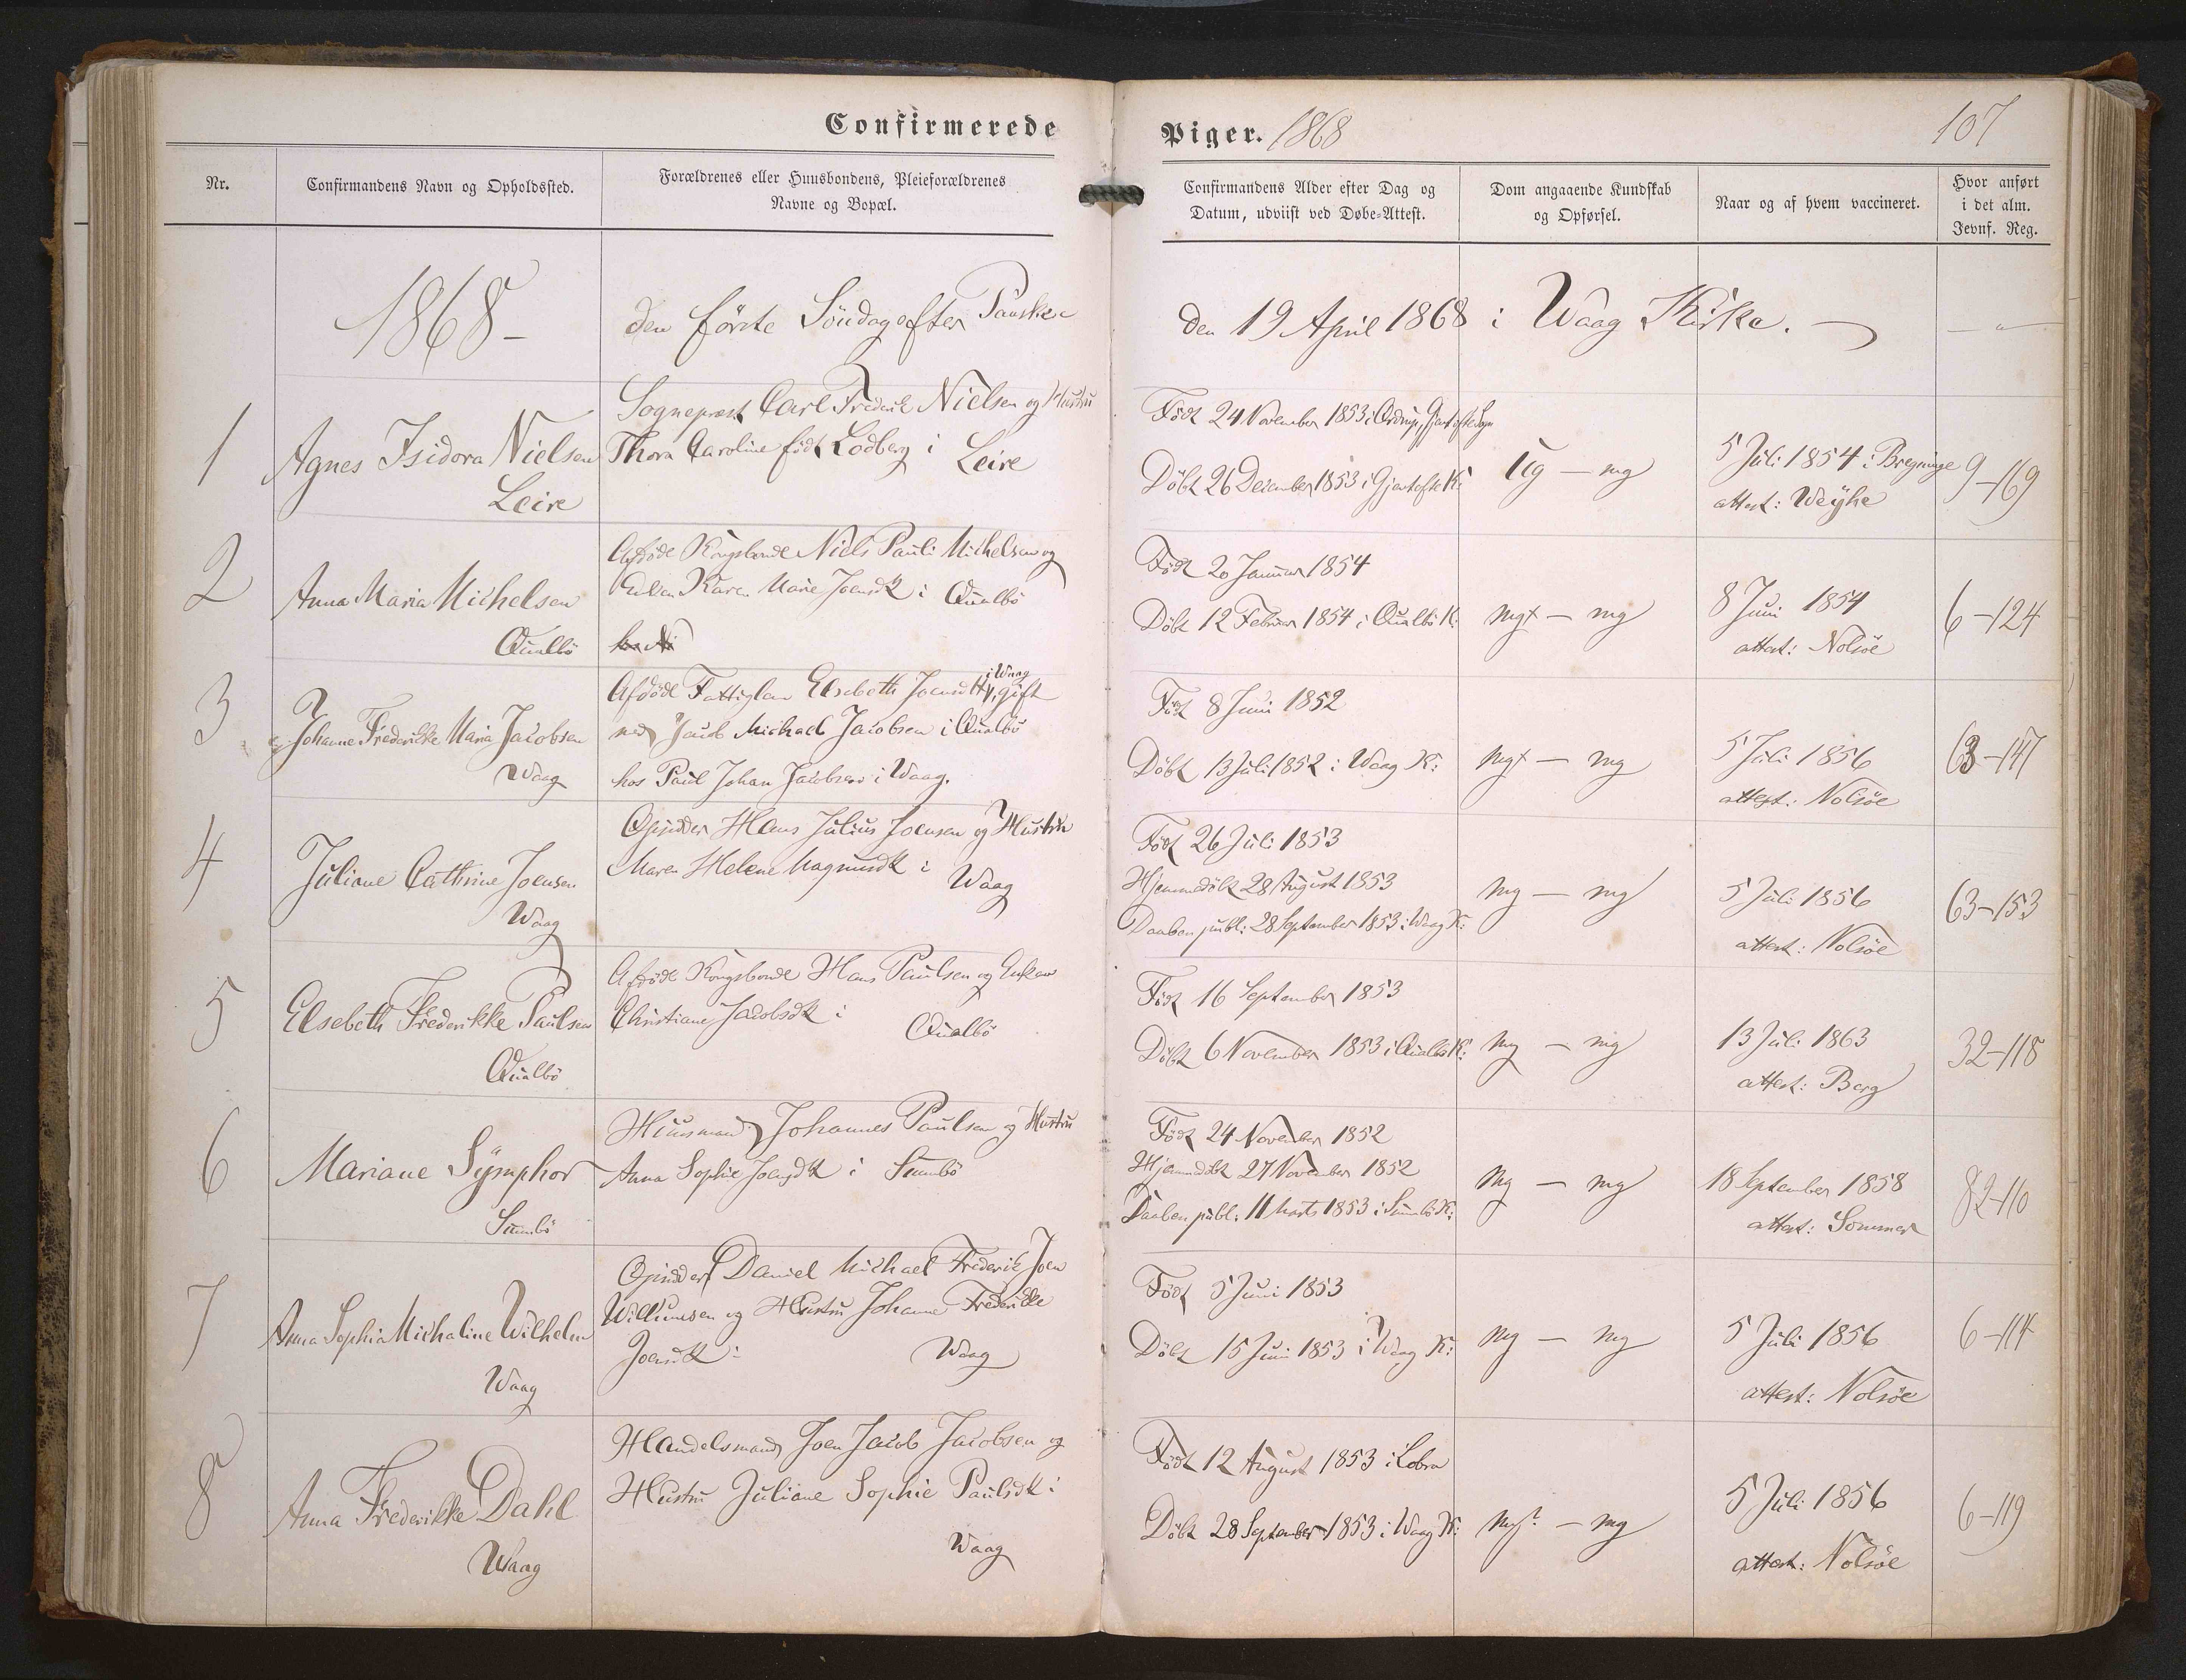 Confirmerede
Piger. 1868
107
Nr.
Confirmandens Navn og Opholdssted.
Forældrenes eller Huusbondens, Pleieforældrenes
Navne og Bopæl.
Confirmandens Alder efter Dag og
Datum, udviist ved Døbe-Attest.
Dom angaaende Kundskab
og Opførsel.
Naar og af hvem vaccineret.
Hvor anført
i det alm.
Jevnf. Reg.
1868
den förste Söndag efter Paaske
den 19 April 1868 i Waag Kirke.
1
Agnes Isidora Nielsen
Leire
Sognepræst Carl Frederik Nielsen og Hustru
Thora Caroline født Lodberg i Leire
Född 24 November 1853 i Ordrup, Gjentofte Sogn
Döbt 26 December 1853 i Gjentofte K:
Ug — mg
5 Juli 1854 i Bregninge
attest: Weyhe
9-169
2
Anna Maria Michelsen
Qualbö
Afdöde Kongsbonde Niels Pauli Michelsen og
Enken Karen Marie Joensdt i Qualbö
Född 20 Januar 1854
Döbt 12 Februar 1854 i Qualbö K:
mg+ — mg
8 Juni 1854
attest: Nolsöe
6-124
3
Johanne Frederikke Maria Jacobsen
Waag
Afdöde Fattiglem Elsebeth Joensdtt i Waag, gift
med Jacob Michael Jacobsen i Qualbö
hos Paul Johan Jacobsen i Waag.
Född 8 Juni 1852
Döbt 13 Juli 1852 i Waag K:
mg+ — mg
5 Juli 1856
attest: Nolsöe
63-147
4
Juliane Cathrine Joensen
Waag
Opsidder Hans Julius Joensen og Hustru
Maren Helene Magnusdt i Waag
Född 26 Juli 1853
Hjemmedöbt 28 August 1853
Daaben publ: 28 September 1853 i Waag K:
mg — mg
5 Juli 1856
attest: Nolsöe
63-153
5
Elsebeth Frederikke Paulsen
Qualbö
Afdöde Kongsbonde Hans Paulsen og Enken
Christiane Jacobsdt i Qualbö
Född 16 September 1853
Döbt 6 November 1853 i Qualbö K:
mg — mg
13 Juli 1863
attest: Berg
32-118
6
Mariane Symphor
Sumbö
Huusmand Johannes Paulsen og Hustru
Anna Sophie Joensdt i Sumbö
Född 24 November 1852
Hjemmedöbt 27 November 1852
Daaben publ: 11 Marts 1853 i Sumbö K:
mg — mg
18 September 1858
attest: Sommer
82-110
7
Anna Sophia Michaline Wilhelm
Waag
Opsidder Daniel Michael Frederik Joen
Willumsen og Hustru Johanne Frederikke
Joensdt i Waag
Född 5 Juni 1853
Döbt 15 Juni 1853 i Waag K:
mg — mg
5 Juli 1856
attest: Nolsöe
6-114
8
Anna Frederikke Dahl
Waag
Handelsmand Joen Jacob Jacobsen og
Hustru Juliane Sophie Paulsdt i
Waag
Född 12 August 1853 i Lobra
Döbt 28 September 1853 i Waag K:
mg? — mg
5 Juli 1856
attest: Nolsöe
6-119